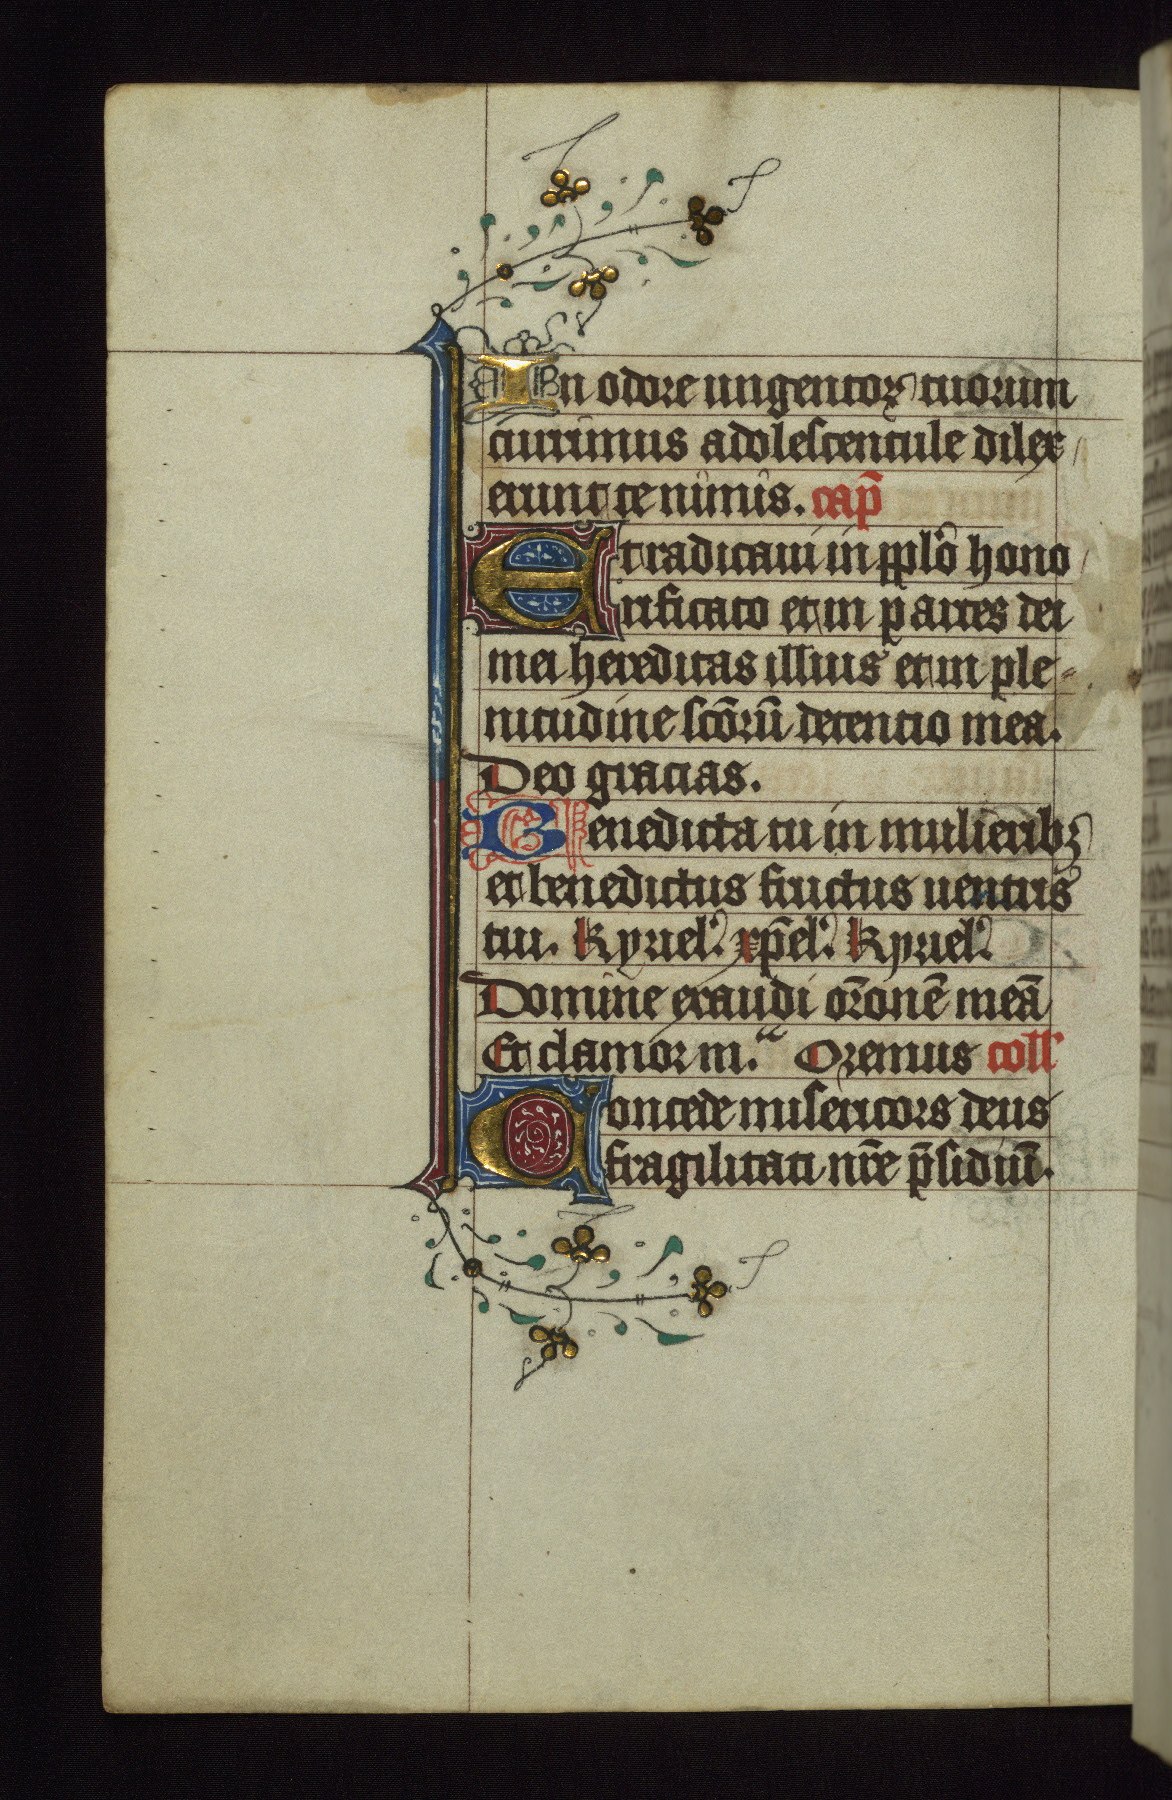 In odore ungentoꝝ tuorum
currimus adolescentule dilex
erunt te nimis. cap̄
Et radicaui in pplō hono
rificato et in partes dei
mei hereditas illius et in ple-
nitudine scōrū detentio mea.
Deo gracias.
Benedicta tu in mulieribꝫ
et benedictus fructus uentris
tui. kyriel'. xp̄el'. kyriel'.
Domine exaudi orōnē meā
Et clamor m. Oremus coll'
Concede misericors deus
fragilitati nr̄e p̄sidiū.